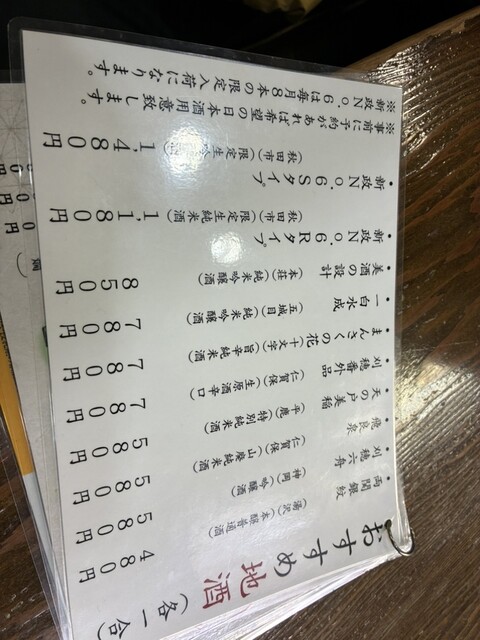 おすすめ地酒（各一合）
・両関銀紋（湯沢）（本醸普通酒）480円
・刈穂六舟（神岡）（吟醸酒）580円
・飛良泉（仁賀保）（山廃純米酒）580円
・天の戸美稲（平鹿）（特別純米酒）
・刈穂番外品（仁賀保）（生原酒辛口）780円
・まんさくの花（十文字）（旨辛純米酒）780円
・一白水成（五城目）（純米吟醸酒）780円
・美酒の設計（本荘）（純米吟醸酒）850円
・新政No.6 Rタイプ
（秋田市）（限定生純米酒）1,180円
・新政No.6 Sタイプ
（秋田市）（限定生 1,480円
※事前に予約があれば希望の日本酒用意致します。
※新政No.6は毎月8本の限定入荷になります。